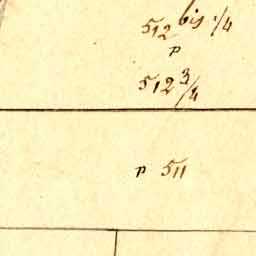 512 bis 1/4
p
512 3/4
p 511